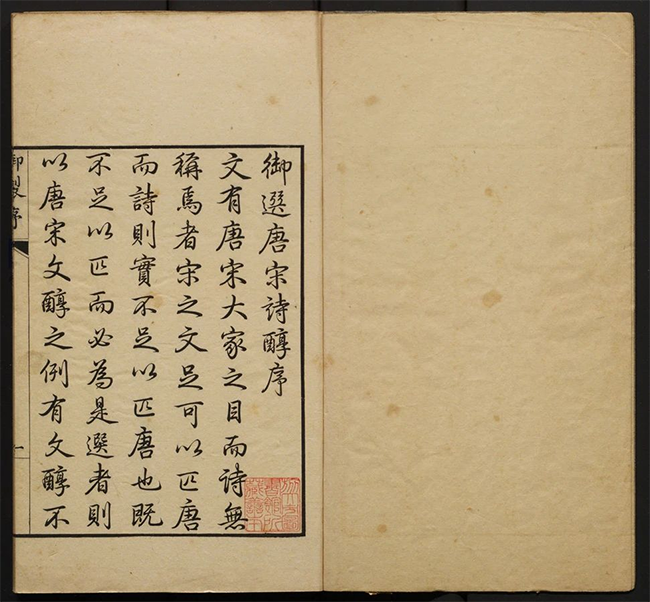 御選唐宋詩醇序
文有唐宋大家之目而詩無
稱焉者宋之文足可以匹唐
而詩則實不足以匹唐也既
不足以匹而必為是選者則
以唐宋文醇之例有文醇不
御製序
一